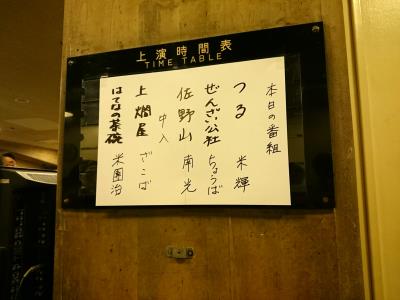 上演時間表
TIME TABLE
本日の番組
つる 米輝
ぜんざい公社 ちょうば
佐野山 南光
中入
上燗屋 ざこば
はてなの茶碗 米團治